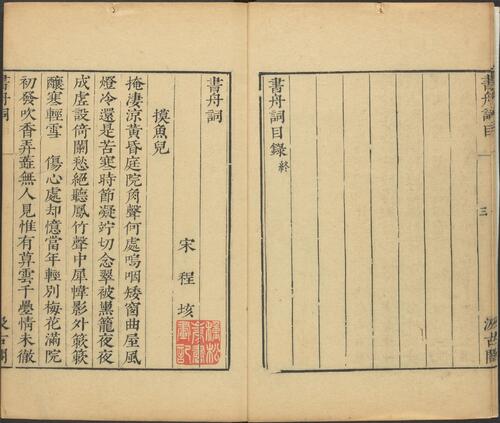 書舟詞目
三
汲古閣
書舟詞目錄終
書舟詞
宋程垓
摸魚兒
掩淒涼黃昏庭院角聲何處嗚咽矮窗曲屋風
燈冷還是苦寒時節凝竚切念翠被熏籠夜夜
成虛設倚闌愁絕聽鳳竹聲中犀幃影外簌簌
釀寒輕雪　傷心處却憶當年輕別梅花滿院
初發吹香弄蕋無人見惟有暮雲千疊情未徹
書舟詞
一
汲古閣